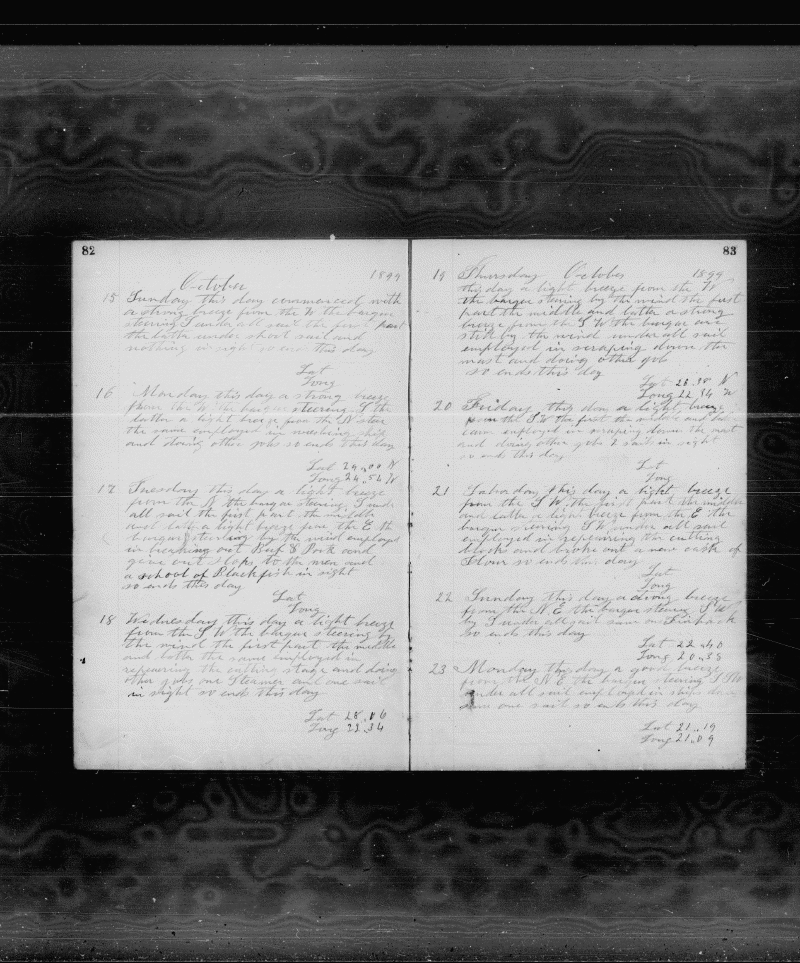 82
October 1899
15 Sunday this day commenced with
a strong breeze from the W the barque
steering S under all sail the first part
the latter under short sail and
nothing in sight so ends this day
Lat
Long
16 Monday this day a strong breeze
from the W the barque steering S the
latter a light breeze from the N steer
the same employed in washing ship
and doing other jobs so ends this day
Lat 29.00 N
Long 24.54 W
17 Tuesday this day a light breeze
from the the barque steering S under
all sail the first part the middle
and latter a light breeze from the E the
barque steering by the wind employed
in breaking out Beef & Pork and
give out slops to the men and
a school of Blackfish in sight
so ends this day
Lat
Long
18 Wednesday this day a light breeze
from the S W the barque steering by
the wind the first part the middle
and latter the same employed in
repairing the cutting stage and doing
other jobs one Steamer and one sail
in sight so ends this day
Lat 28.06
Long 22.34
83
19 Thursday October 1899
this day a light breeze from the W
the barque steering by the wind the first
part the middle and latter a strong
breeze from the S W the barque are
steering by the wind under all sail
employed in scraping down the
mast and doing other job
so ends this day
Lat N
Long 22.34 W
20 Friday this day a light breeze
from the S W the first the middle and latter
calm employed in scraping down the mast
and doing other jobs 1 sail in sight
so ends this day
Lat
Long
21 Saturday this day a light breeze
from the S W the first part the middle
and latter a light breeze from the E the
barque steering S W under all sail
employed in repairing the cutting
block and broke out a new cask of
Flour so ends this day
Lat
Long
22 Sunday this day a strong breeze
from the N.E the barque steering S W
by S under all sail saw one Finback
so ends this day
Lat 22.40
Long 20.58
23 Monday this day a good breeze
from the N E the barque steering S S W
under all sail employed in ship
saw one sail so ends this day
Lat 21.19
Long 21.09